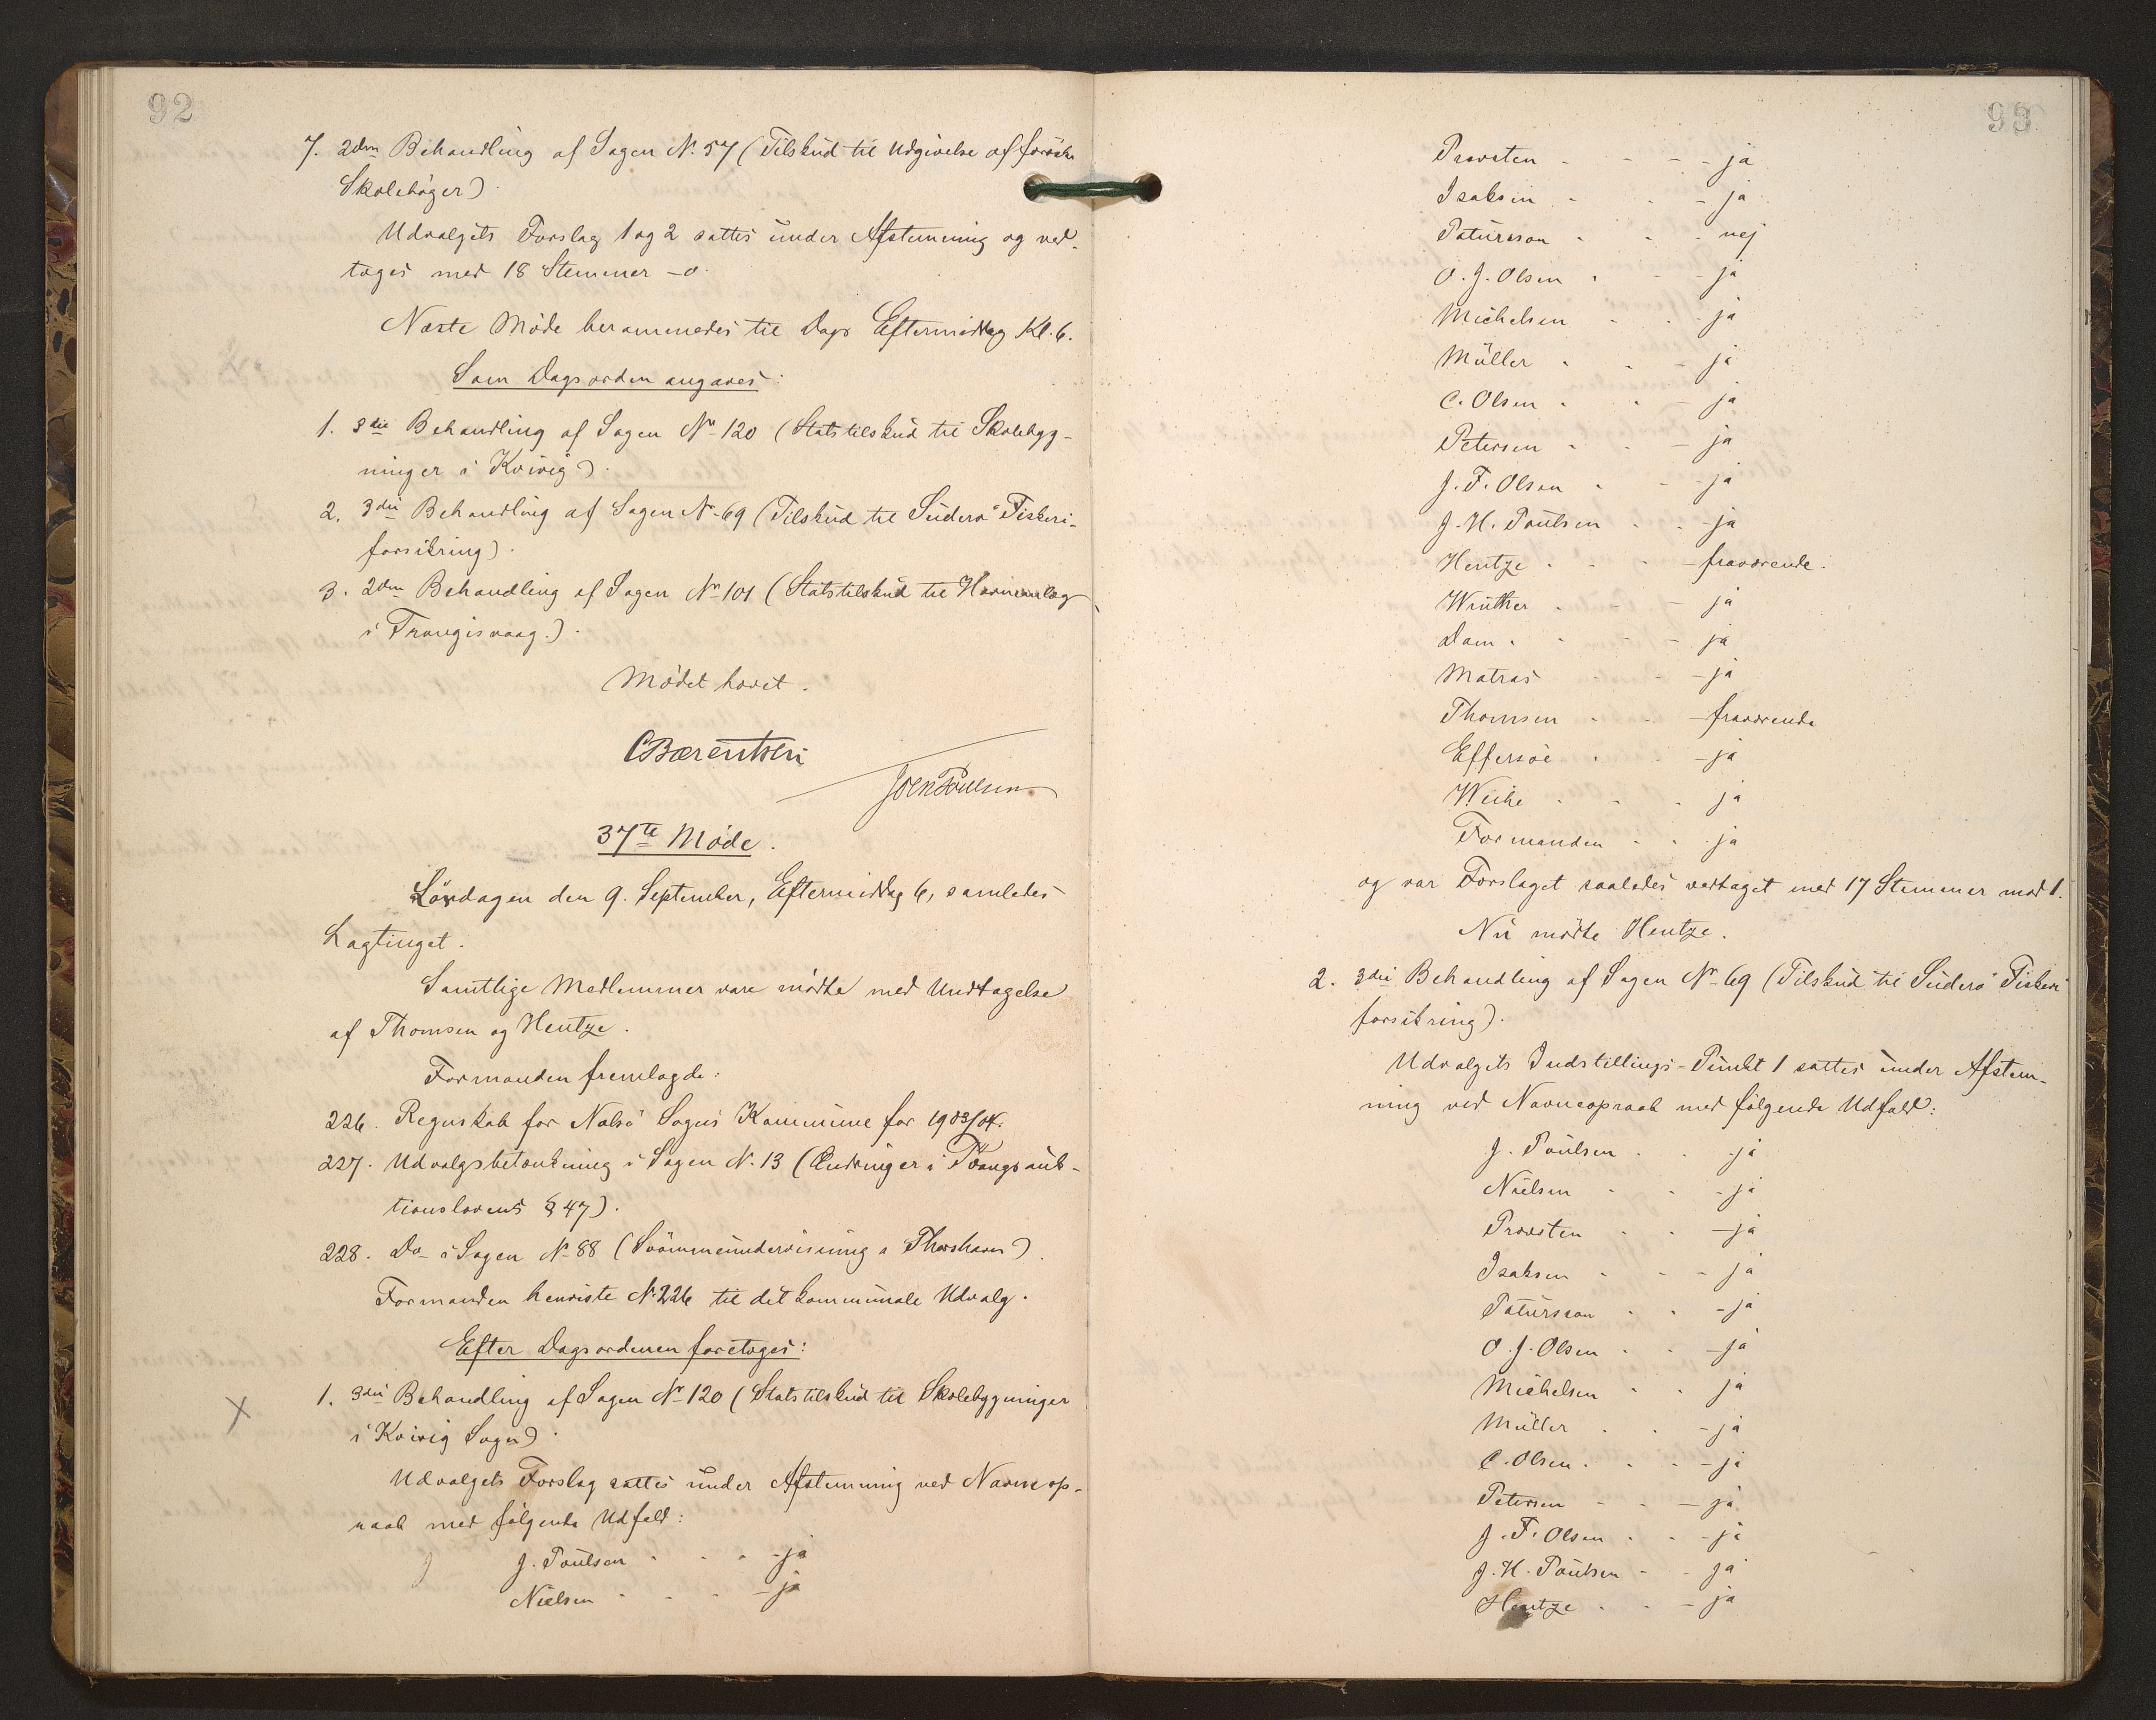 92
7. 2den Behandling af Sagen N. 57 (Tilskud til Udgivelse af færöske
Skolebøger).
Udvalgets Forslag 1 og 2 sattes under Afstemning og ved-
toges med 18 Stemmer - o.
Næste Møde berammedes til Dags Eftermiddag Kl. 6.
Som Dagsorden angaves:
1. 3die Behandling af Sagen Nr 120 (Statstilskud til Skolebyg-
ninger i Kvivig).
2. 3die Behandling af Sagen Nr 69 (Tilskud til Süderø Fiskeri-
forsikring).
3. 2den Behandling af Sagen Nr 101 (Statstilskud til Havneanlæg
i Trangisvaag.).
Mødet hævet.
CBærentsen
Joen Poulsen
37te Møde.
Lørdagen den 9. September, Eftermiddag 6, samledes
Lagtinget.
Samtlige Medlemmer vare mødte med Undtagelse
af Thomsen og Hentze.
Formanden fremlagde:
226. Regnskab for Nolsø Sogns Kommune for 1903/04.
227. Udvalgsbetænkning i Sagen N. 13 (Ændringer i Tvangsauk-
tionslovens § 47).
228. Do i Sagen N. 88 (Svømmeundervisning i Thorshavn).
Formanden henviste N. 226 til det kommunale Udvalg.
Efter Dagsordenen foretoges:
1. 3die Behandling af Sagen Nr 120 (Statstilskud til Skolebygninger
i Kvivig Sogn).
Udvalgets Forslag sattes under Afstemning ved Navneop-
raab med følgende Udfald:
J. Poulsen - - - - ja
Nielsen - - - - ja
93
Provsten - - - - ja
Isaksen - - - ja
Patursson - - - nej
O. J. Olsen - - - ja
Michelsen - - - ja
Müller - - - ja
C. Olsen - - - ja
Petersen - - - ja
J. F. Olsen - - - ja
J. H. Poulsen - - - ja
Hentze - - - fraværende.
Winther - - - ja
Dam - - - - ja
Matras - - - ja
Thomsen - - - fraværende
Effersøe - - - ja
Weihe - - - ja
Formanden - - - ja
og var Forslaget saaledes vedtaget med 17 Stemmer mod 1.
Nu mødte Hentze.
2. 3die Behandling af Sagen Nr 69 (Tilskud til Süderø Fiskeri
forsikring).
Udvalgets Indstillings-Punkt 1 sattes under Afstem-
ning ved Navneopraab med følgende Udfald:
J. Poulsen - - - ja
Nielsen - - - ja
Provsten - - - ja
Isaksen - - - ja
Patursson - - - ja
O. J. Olsen - - - ja
Michelsen - - ja
Müller - - - ja
C. Olsen - - - ja
Petersen - - - ja
J. F. Olsen - - - ja
J. H. Poulsen - - ja
Hentze - - - ja